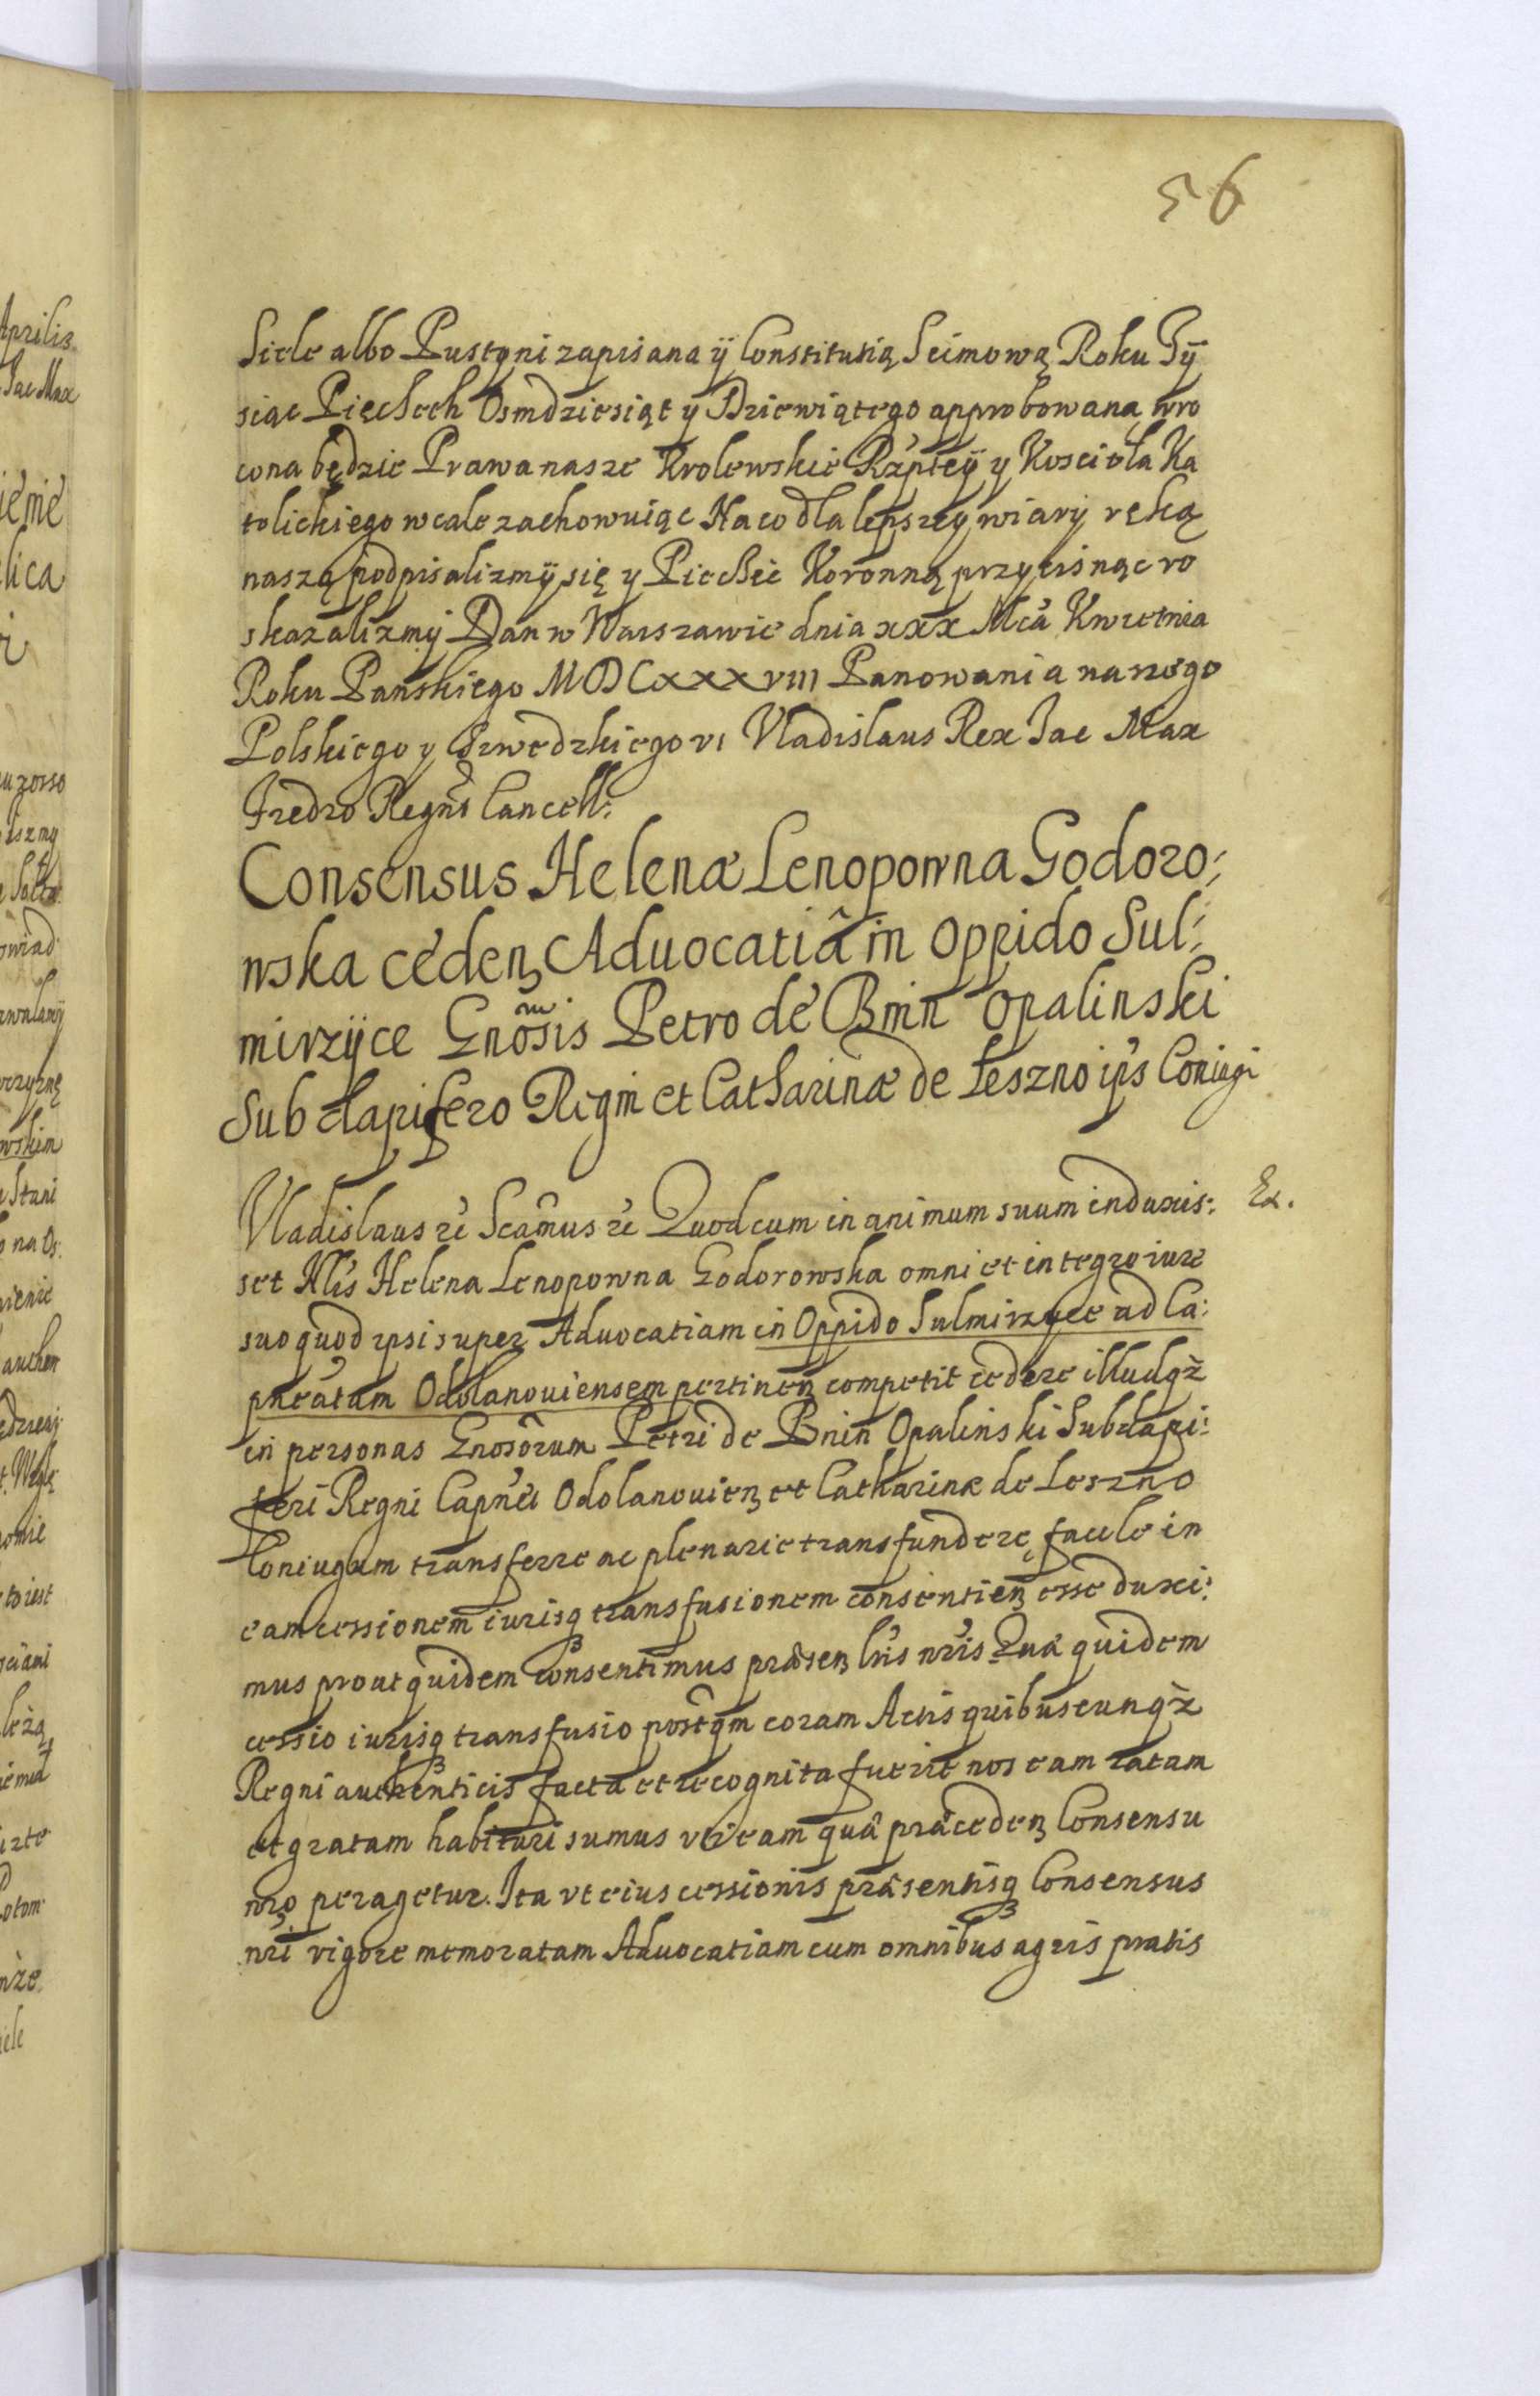 56
Siele albo Pustyni zapisana ÿ Constitutią Seimową Roku Tÿ
siąc Pięcseth Osmdziesiąt y Dziewiątego approbowana wro
cona będzie Prawa nasze Krolewskie Rzpteÿ y Kosciola Ka
tolickiego wcale zachowuiąc Na co dla lepszey wiarÿ ręką
naszą podpisalizmÿ się y Piecżęć Koronną przycisnąc ro
skazalizmÿ Dan w Warszawie dnia xxx Mca Kwietnia
Roku Panskiego MDCxxxviii Panowania naszego
Polskiego y Szwedzkiego vi Vladislaus Rex Jac Max
Fredro Regni Cancell:
Consensus Helenæ Lenopowna Godoro:
wska ceden Aduocatiâ in Oppido Sul:
mirzÿce Gnosis Petro de Bnin Opalinski
Subdapifero Regni et Catharinæ de Leszno ips Coniugi
Vladislaus rc Scamus rc Quod cum in animum suum induxis: Ex.
set Nlis Helena Lenopowna Godorowska omni et integro iure
suo quod ipsi super Aduocatiam in Oppido Sulmirzyce ad Ca:
pneatum Odolanouiensem pertinen competit cedere illudqz
in personas Gnosorum Petri de Bnin Opalinski Subdapi:
feri Regni Capnei Odolanouien et Catharinæ de Leszno
Coniugum transferre ac plenarie transfundere, facile in
eam cessionem iurisq transfusionem consentien esse duxi:
mus prout quidem consentimus præsen lris nris Quæ quidem
cessio iurisq transfusio postqm coram Actis quibuscunqz
Regni authenticis facta et recognita fuerit nos eam ratam
et gratam habituri sumus vti eam quâ præceden Consensu
nro peragetur. Ita vt eius cessionis præsentisq Consensus
nri vigore memoratam Aduocatiam cum omnibus agris pratis